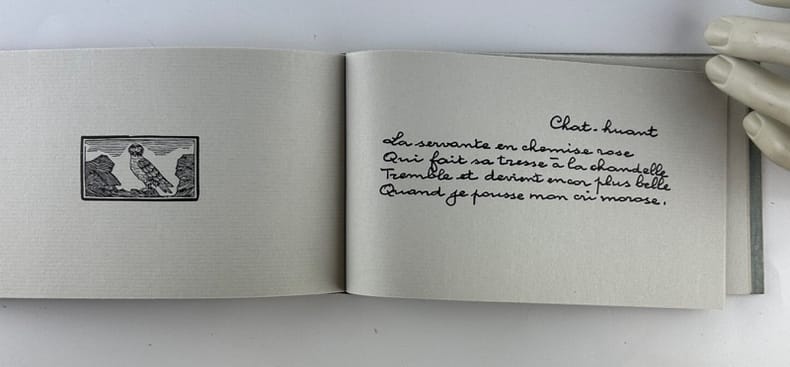 Chat-huant
La servante en chemise rose
Qui fait sa tresse à la chandelle
Tremble et devient encor plus belle
Quand je pousse mon cri morose.